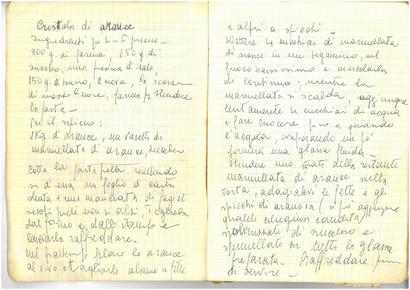 Crostata di arance
Ingredienti per
300 g. di farina, 150 g. di
zucchero, un pizzico di sale,
150 g. di burro, 2 uova, la scorza
di
la pasta -
per il ripieno:
1 Kg. d'arance, un vasetto di
marmellata d'arance, zucchero
Cotta la pasta mettendo
un foglio di carta
oleata e una manciata di fagioli
secchi
dal forno e dallo stampo e
lasciarla raffreddare.
Nel frattempo pelare le arance
al vivo e tagliarle alcune a fette
e altri a spicchi -
Mettere 4 cucchiai di marmellata
di arance in un pegamino, sul
fuoco bassissimo e mescolarla
di continuo; mentre la
marmellata si scalda, aggiungere
lentamente 4 cucchiai di acqua
e far cuocere fino a quando
l'acqua, evaporando un po'
formerà una glassa fluida -
Stendere uno strato della restante
marmellata di arance nella
torta, adagiarvi le fette e gli
spicchi di arancia (si può aggiungere
qualche ciliegina candita)
spolverizzate di zucchero e
spennellate su tutto la glassa
preparata. Raffreddare prima
di servire -